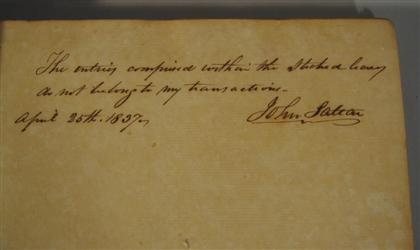 The entries comprised within the stitched leaves
do not belong to my transactions.
John
April 25th. 1837